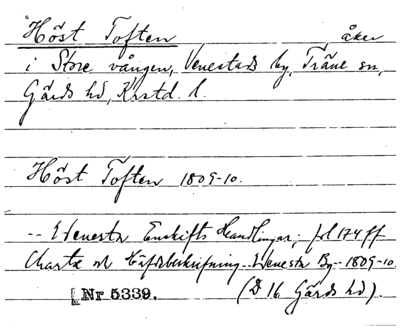 Höst Toften åker
i Store vången, Venestads by, Träne sn,
Gärds hd, Krstd. l.
Höst Toften 1809-10.
-- Wenesta Enskifts Handlingar, fol 174 ff
Charta och Häfdebeskrifning.. Wenesta By-- 1809-10.
[Nr 5339. (D 16 Gärds hd).